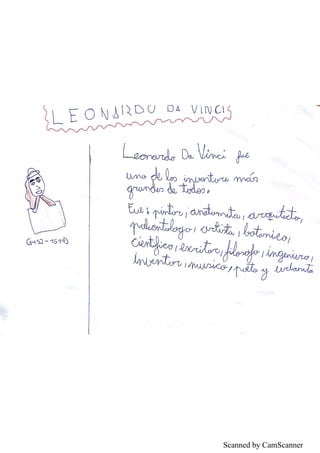 LEONARDO DA VINCI
Leonardo Da Vinci fue
uno de los inventore más
grandes de todos.
(1452-1519)
Fue: pintor, anatomita, arquitecto,
paleontologo, artista, botanico,
científico, escritor, filosofo, ingeniero,
inventor, musico, poeta y urbanita
Scanned by CamScanner